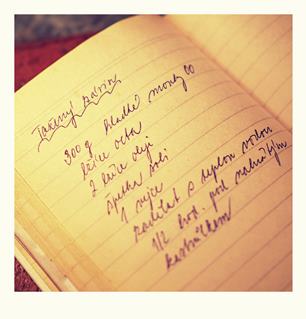 Tažený závin
300 g hladké mouky 00
lžíce octa
2 lžíce oleje
špetka soli
1 vejce
zadělat s teplou vodou
1/2 hod. pod nahřátým
kastrůlkem